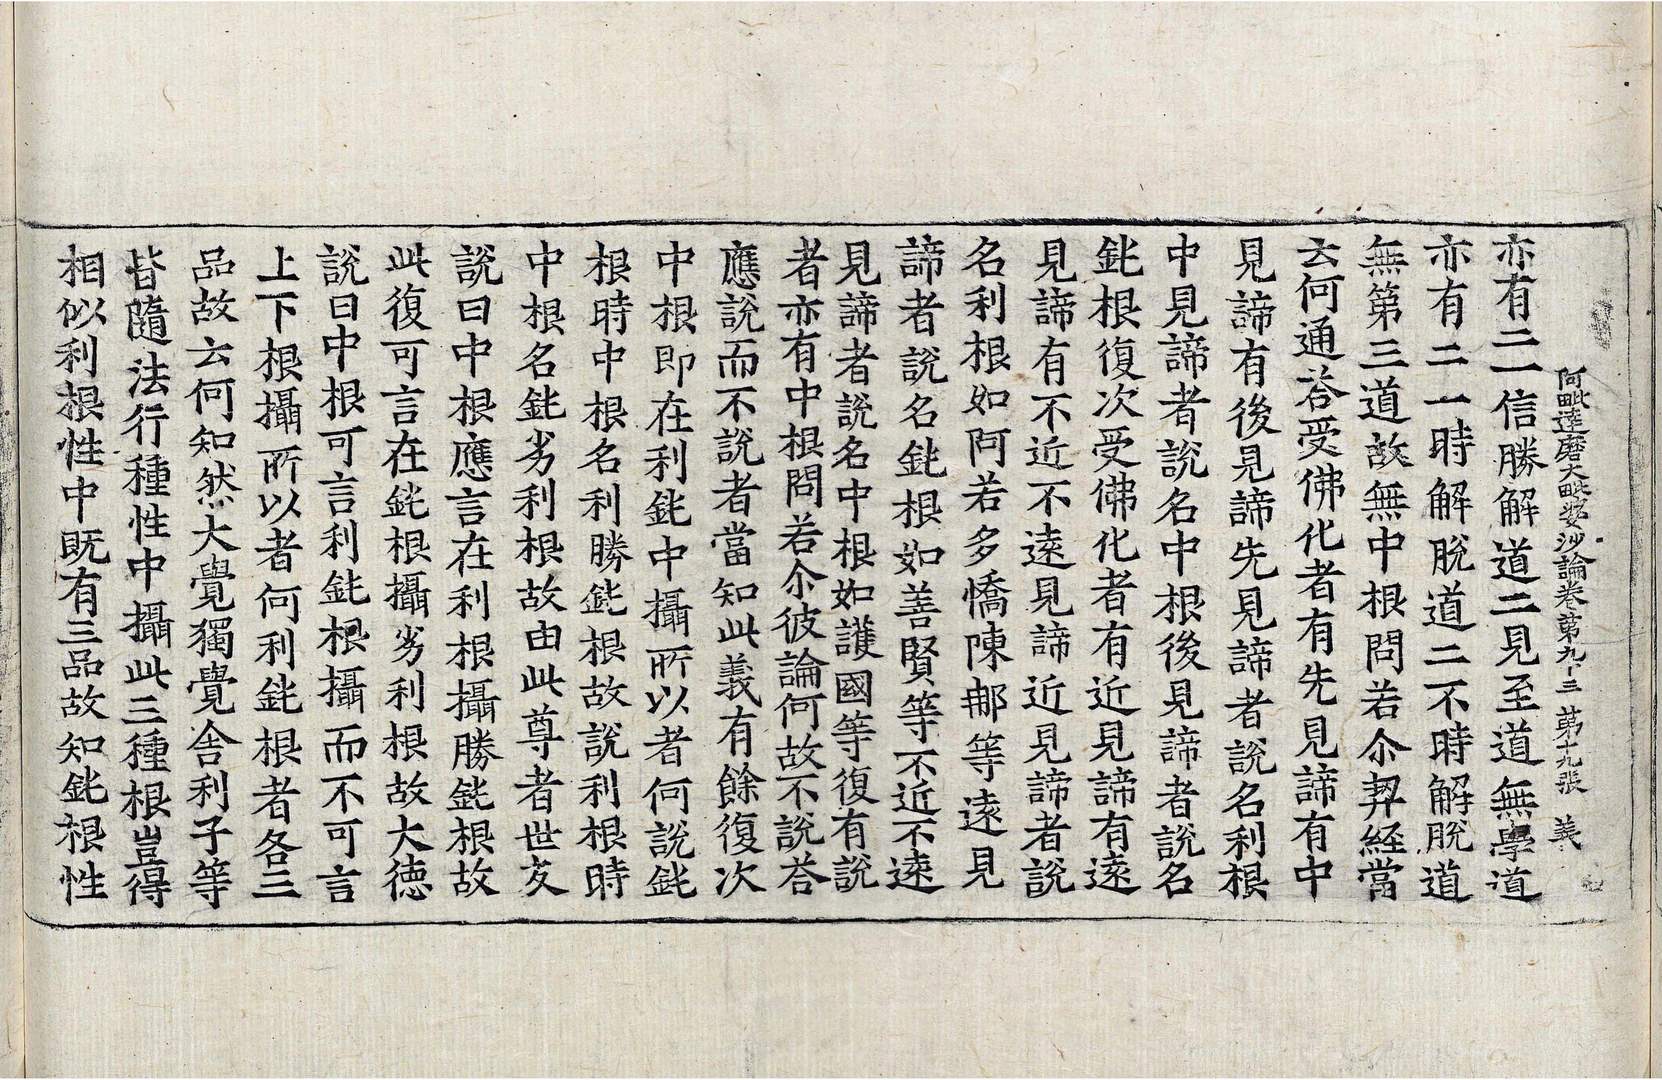 阿毗達磨大毗婆沙論卷第九十三 第十九張 義
亦有二一信勝解道二見至道無學道
亦有二一時解脫道二不時解脫道
無第三道故無中根問若尒契經當
云何通荅受佛化者有先見諦有中
見諦有後見諦先見諦者說名利根
中見諦者說名中根後見諦者說名
鈍根復次受佛化者有近見諦有遠
見諦有不近不遠見諦近見諦者說
名利根如阿若多憍陳那等遠見
諦者說名鈍根如善賢等不近不遠
見諦者說名中根如護國等復有說
者亦有中根問若尒彼論何故不說荅
應說而不說者當知此義有餘復次
中根即在利鈍中攝所以者何說鈍
根時中根名利勝鈍根故說利根時
中根名鈍劣利根故由此尊者世友
說曰中根應言在利根攝勝鈍根故
此復可言在鈍根攝劣利根故大德
說曰中根可言利鈍根攝而不可言
上下根攝所以者何利鈍根者各三
品故云何知然大覺獨覺舍利子等
皆隨法行種性中攝此三種根豈得
相似利根性中既有三品故知鈍根性